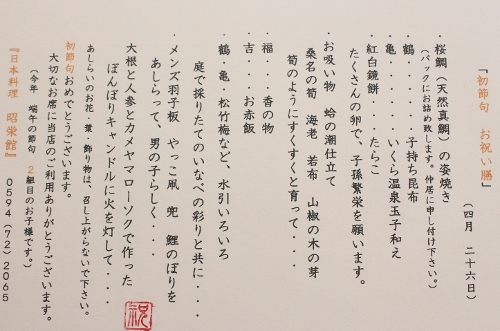 『初節句　お祝い膳』
（四月　二十六日）
・桜鯛（天然真鯛）の姿焼き
（パックにお詰め致します。仲居に申し付け下さい。）
・鶴・・・・・子持ち昆布
・亀・・・・・いくら温泉玉子和え
・紅白鏡餅・・・・たらこ
たくさんの卵で、子孫繁栄を願います。
・お吸い物　蛤の潮仕立て
桑名の筍　海老　若布　山椒の木の芽
筍のようにすくすくと育って・・・
・福・・・香の物
・吉・・・お赤飯
・鶴・亀　松竹梅など、水引いろいろ
庭で採りたてのいなべの彩りと共に・・・
・メンズ羽子板　やっこ凧　兜　鯉のぼりを
あしらって、男の子らしく・・・
大根と人参とカメヤマローソクで作った
ぼんぼりキャンドルに火を灯して・・・
あしらいのお花・葉・飾り物は、召し上がらないで下さい。
初節句おめでとうございます。
大切なお席に当店のご利用ありがとうございます。
（今年　端午の節句　2組目のお子様です。）
『日本料理　昭栄館』　0594(72)2065
祝